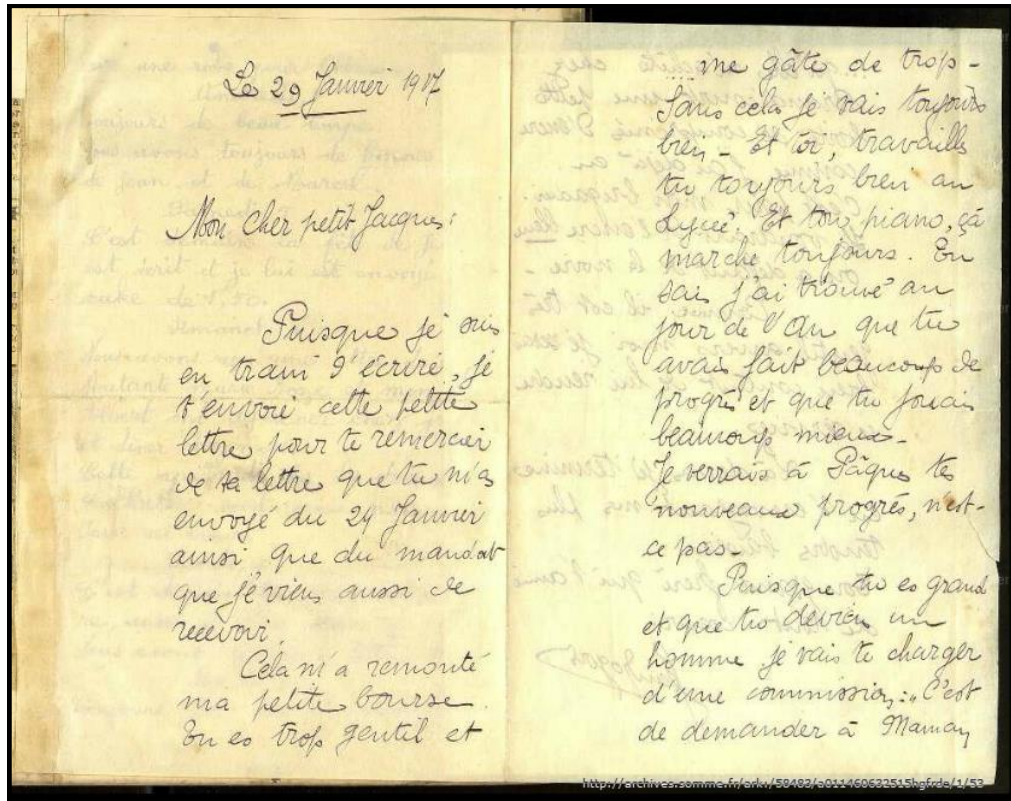 Le 29 Janvier 1917
Mon cher petit Jacques:
Puisque je suis
en train d'écrire, je
t'envoie cette petite
lettre pour te remercier
de ta lettre que tu m'as
envoyé du 24 Janvier
ainsi que du mandat
que je viens aussi de
recevoir.
Cela m'a remonté
ma petite bourse.
Tu es trop gentil et
me gâte de trop -
Sans cela je vais toujours
bien - Et toi, travailles
tu toujours bien au
Lycée. Et ton piano, çà
marche toujours. Tu
sais j'ai trouvé au
jour de l'An que tu
avais fait beaucoup de
progrès et que tu jouais
beaucoup mieux -
Je verrais à Pâques tes
nouveaux progrès, n'est-
ce pas -
Puisque tu es grand
et que tu deviens un
homme je vais te charger
d'une commission: "C'est
de demander à Maman
http://archives.somme.fr/ark:/58483/a011460632515hgfrde/1/53